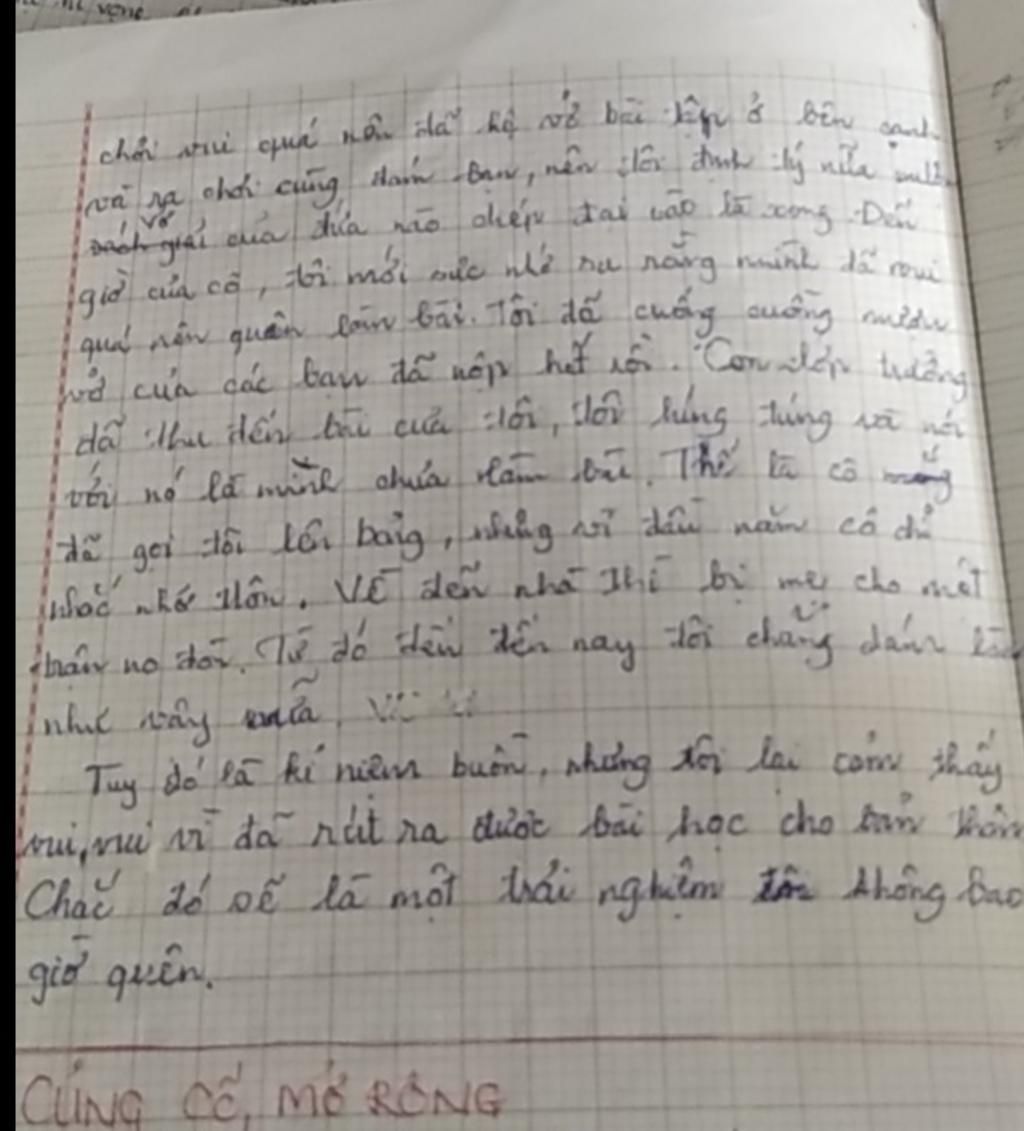 chơi vui quá nên đã kệ vở bài tập ở bên cạnh
và ra chơi cùng đám bạn, nên tôi định tý nữa
vở giải của đứa nào chép đại vào là xong. Đến
giờ của cô, tôi mới sực nhớ ra rằng mình đã vui
quá nên quên làm bài. Tôi đã cuống cuồng mượn
vở của các bạn đã nộp hết rồi. Con lớp trưởng
đã thu đến bài của tôi, tôi lúng túng và nói
với nó là mình chưa làm bài. Thế là cô
đã gọi tôi lên bảng, nhưng vì đầu năm cô chỉ
nhắc nhở thôn. Về đến nhà thì bị mẹ cho một
trận no đòn. Từ đó đến đến nay tôi chẳng dám làm
như vậy nữa.
Tuy đó là kỉ niệm buồn, nhưng tôi lại cảm thấy
vui, vui vì đã rút ra được bài học cho bản thân
Chắc đó sẽ là một trải nghiệm tôi không bao
giờ quên.
CỦNG CỐ, MỞ RỘNG